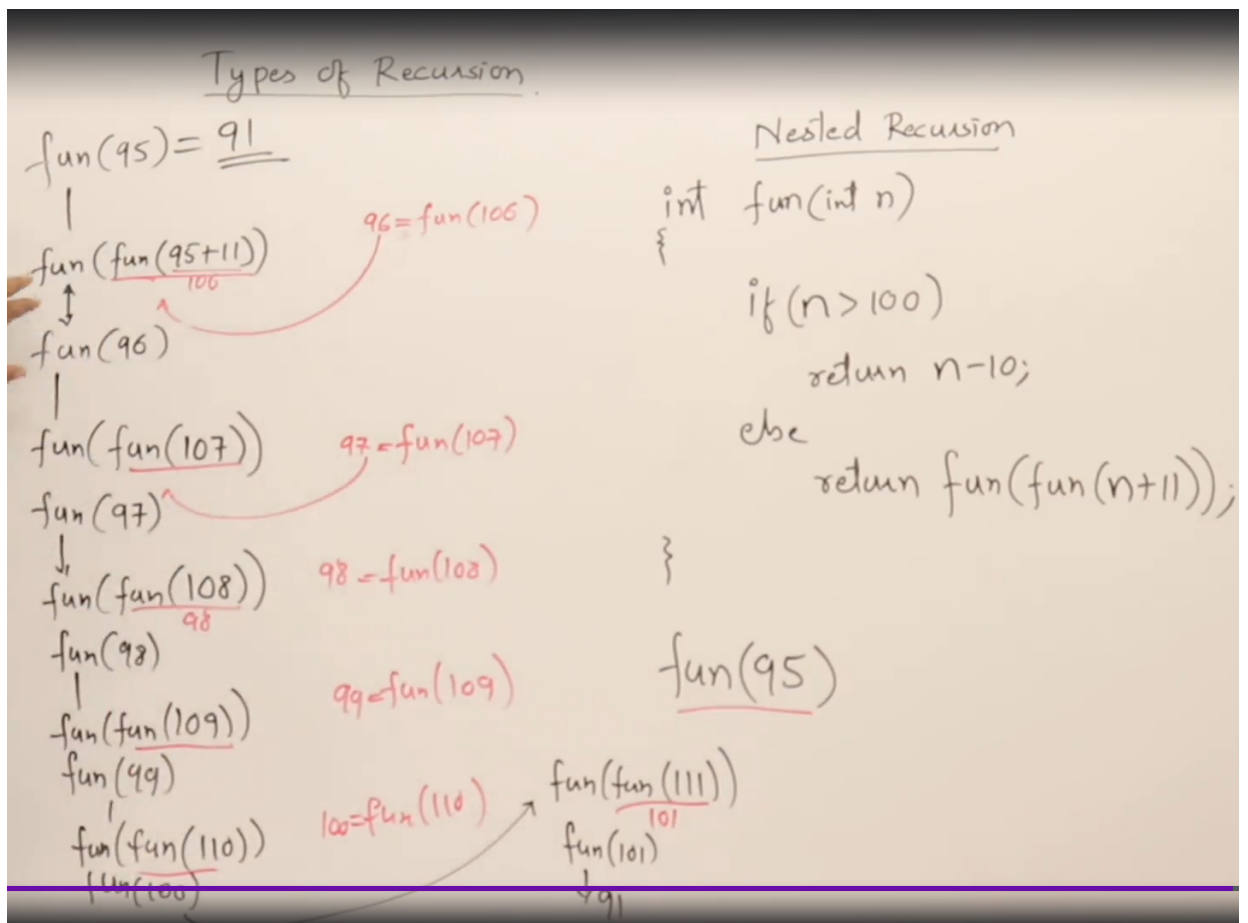 Types of Recursion.
fun(95) = 91
fun(fun(95+11))
106
96 = fun(106)
fun(96)
fun(fun(107))
97 = fun(107)
fun(97)
fun(fun(108))
98
98 = fun(108)
fun(98)
fun(fun(109))
99 = fun(109)
fun(99)
fun(fun(110))
100 = fun(110)
fun(100)
fun(fun(111))
101
fun(101)
91
Nested Recursion
int fun(int n)
{
if (n>100)
return n-10;
else
return fun(fun(n+11));
}
fun(95)